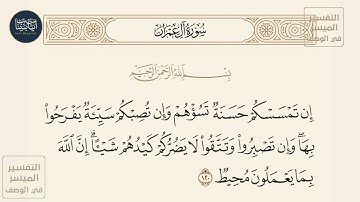 سُورَةُ آلِ عِمْرَانَ
التفسير
الميسر
في الوصف
بِسْمِ اللَّهِ الرَّحْمَٰنِ الرَّحِيمِ
إِن تَمْسَسْكُمْ حَسَنَةٌ تَسُؤْهُمْ وَإِن تُصِبْكُمْ سَيِّئَةٌ يَفْرَحُوا۟
بِهَا ۖ وَإِن تَصْبِرُوا۟ وَتَتَّقُوا۟ لَا يَضُرُّكُمْ كَيْدُهُمْ شَيْـًٔا ۗ إِنَّ ٱللَّهَ
بِمَا يَعْمَلُونَ مُحِيطٌ ١٢٠
التفسير
الميسر
في الوصف